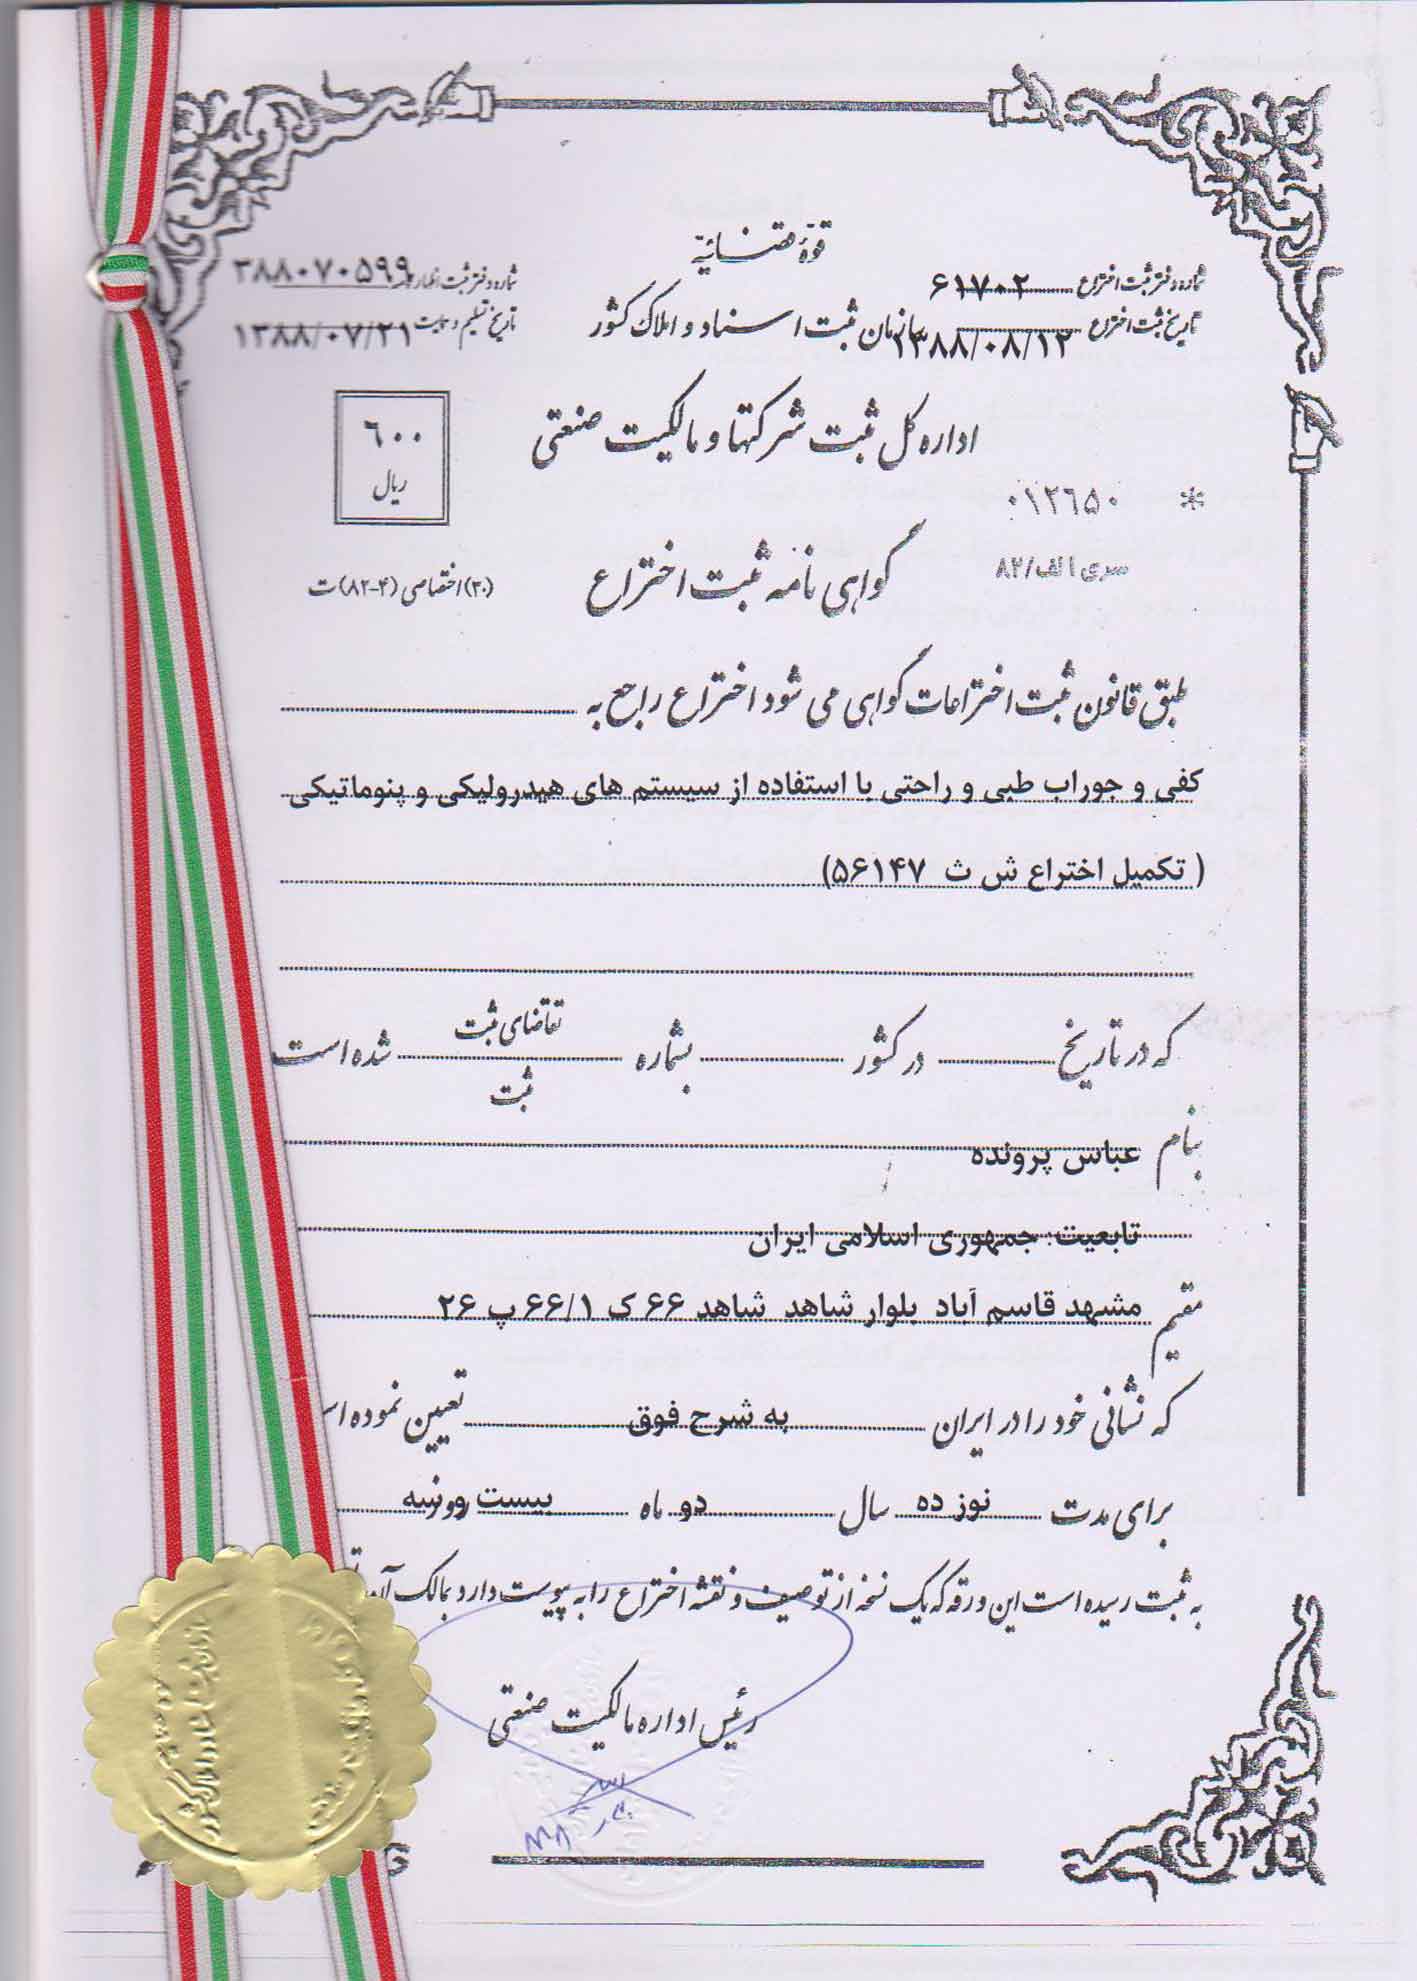 قوۀ قضائیه
شماره دفتر ثبت اختراع ۶۱۷۰۲
شماره دفتر ثبت اظهارنامه ۳۸۸۰۷۰۵۹۹
سازمان ثبت اسناد و املاک کشور
تاریخ ثبت اختراع ۱۳۸۸/۰۸/۱۲
تاریخ تسلیم و حمایت ۱۳۸۸/۰۷/۲۱
اداره کل ثبت شرکتها و مالکیت صنعتی
۶۰۰
ریال
* ۰۱۲٦۵۰
سری الف/۸۲
گواهی نامه ثبت اختراع
(۳۰) اختصاصی (۴-۸۲) ت
طبق قانون ثبت اختراعات گواهی می شود اختراع راجع به
کفی و جوراب طبی و راحتی با استفاده از سیستم های هیدرولیکی و پنوماتیکی
( تکمیل اختراع ش ث ۵۶۱۴۷)
که در تاریخ در کشور بشماره تقاضای ثبت شده است
ثبت
بنام عباس پرونده
تابعیت: جمهوری اسلامی ایران
مقیم مشهد قاسم آباد بلوار شاهد شاهد ۶۶ ک ۶۶/۱ پ ۲۶
که نشانی خود را در ایران به شرح فوق تعیین نموده
برای مدت نوزده سال دو ماه بیست و نه
به ثبت رسیده است این ورقه که یک نسخه از توصیف و نقشه اختراع را به پیوست دارد بمالک آن
رئیس اداره مالکیت صنعتی